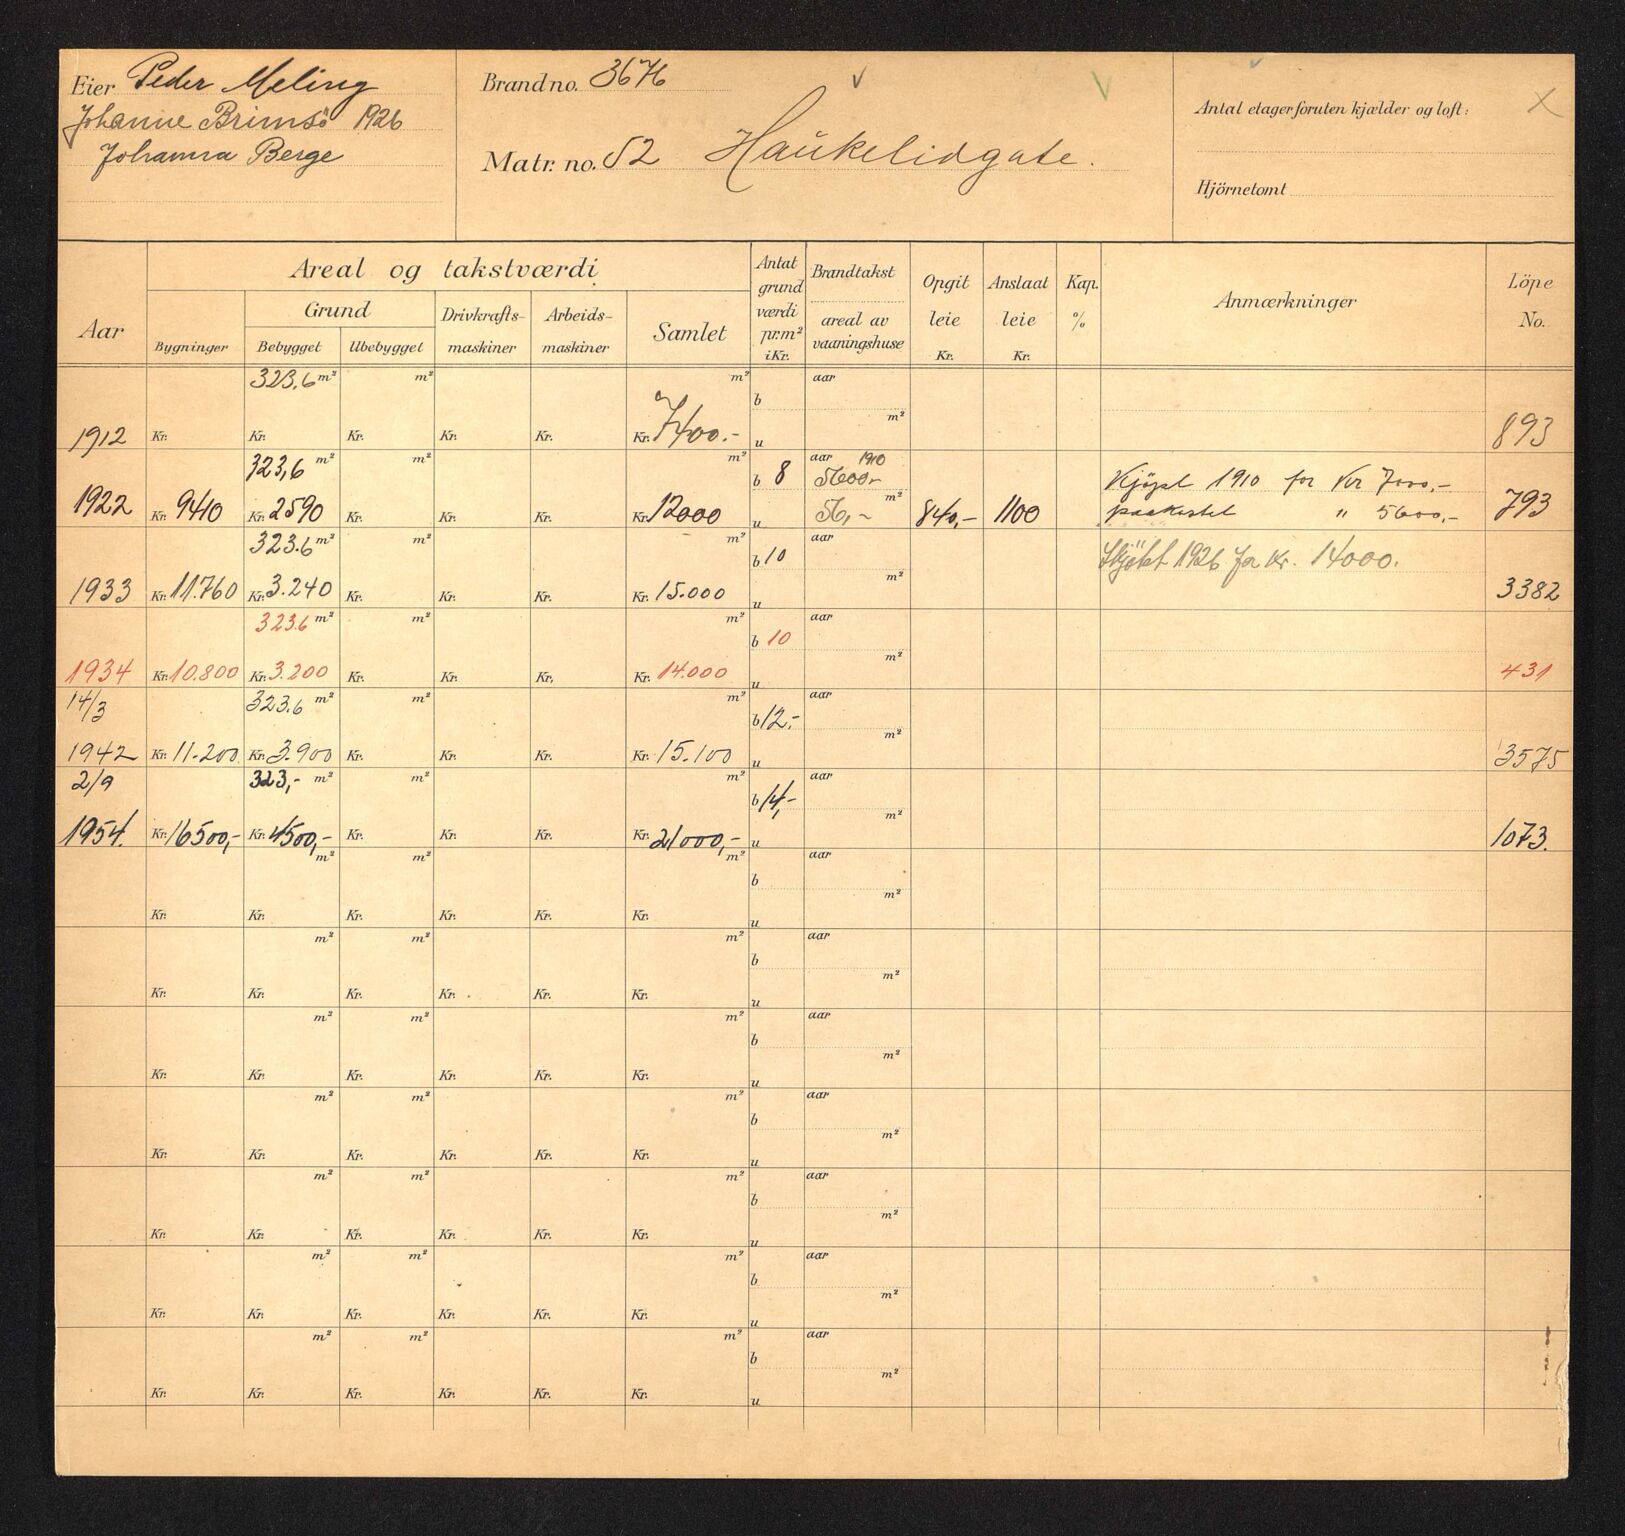 Eier Peder Meling
Johanne Brimsö 1926
Johanna Berge
Brandno. 367b
Matr. no. 52 Haukelidgate.
Antal etager foruten kjælder og loft:
Hjörnetomt
Aar
Areal og takstværdi
Grund
Bygninger
Bebygget
Ubebygget
Drivkrafts-maskiner
Arbeids-maskiner
Samlet
Antat grund værdi pr. m² i Kr.
Brandtakst
areal av vaaningshuse
Opgit leie Kr.
Anslaat leie Kr.
Kap. %
Anmærkninger
Löpe No.
323.6 m² m² m² aar
b
m²
1912 Kr. Kr. Kr. Kr. Kr. Kr. 7400.- u 893
323,6 m² m² m² b 8 aar 1910
5600,- Kjöpt 1910 for Kr 7000,-
m²
1922 Kr. 9410 Kr. 2590 Kr. Kr. Kr. Kr. 12000 u 56,- 840,- 1100 paakostet " 5600,- 793
323.6 m² m² m² b 10 aar
Skjöte 1926 for kr. 14000.
m²
1933 Kr. 11.760 Kr. 3.240 Kr. Kr. Kr. Kr. 15.000 u 3382
323.6 m² m² m² aar
b 10
m²
1934 Kr. 10.800 Kr. 3.200 Kr. Kr. Kr. Kr. 14.000 u 431
14/3 323.6 m² m² m² aar
b 12.-
m²
1942 Kr. 11.200 Kr. 3.900 Kr. Kr. Kr. Kr. 15.100 u 3575
2/9 323,- m² m² m² aar
b 14,-
m²
1954. Kr. 16500,- Kr. 4500,- Kr. Kr. Kr. Kr. 21000,- u 1073.
m² m² m² aar
b
m²
Kr. Kr. Kr. Kr. Kr. Kr.
m² m² m² aar
b
m²
Kr. Kr. Kr. Kr. Kr. Kr. u
m² m² m² aar
b
m²
Kr. Kr. Kr. Kr. Kr. Kr. u
m² m² m² aar
b
m²
Kr. Kr. Kr. Kr. Kr. Kr. u
m² m² m² aar
b
m²
Kr. Kr. Kr. Kr. Kr. Kr. u
m² m² m² aar
b
m²
Kr. Kr. Kr. Kr. Kr. Kr. u
m² m² m² aar
b
m²
Kr. Kr. Kr. Kr. Kr. Kr. u